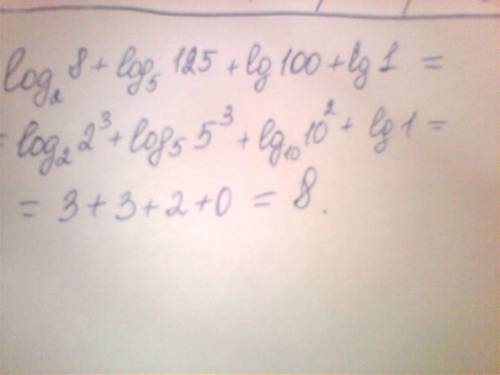 log₂ 8 + log₅ 125 + lg 100 + lg 1 =
= log₂ 2³ + log₅ 5³ + lg₁₀ 10² + lg 1 =
= 3 + 3 + 2 + 0 = 8.